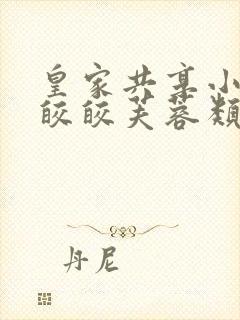 皇家共享小
皎皎芙蓉类
丹尼